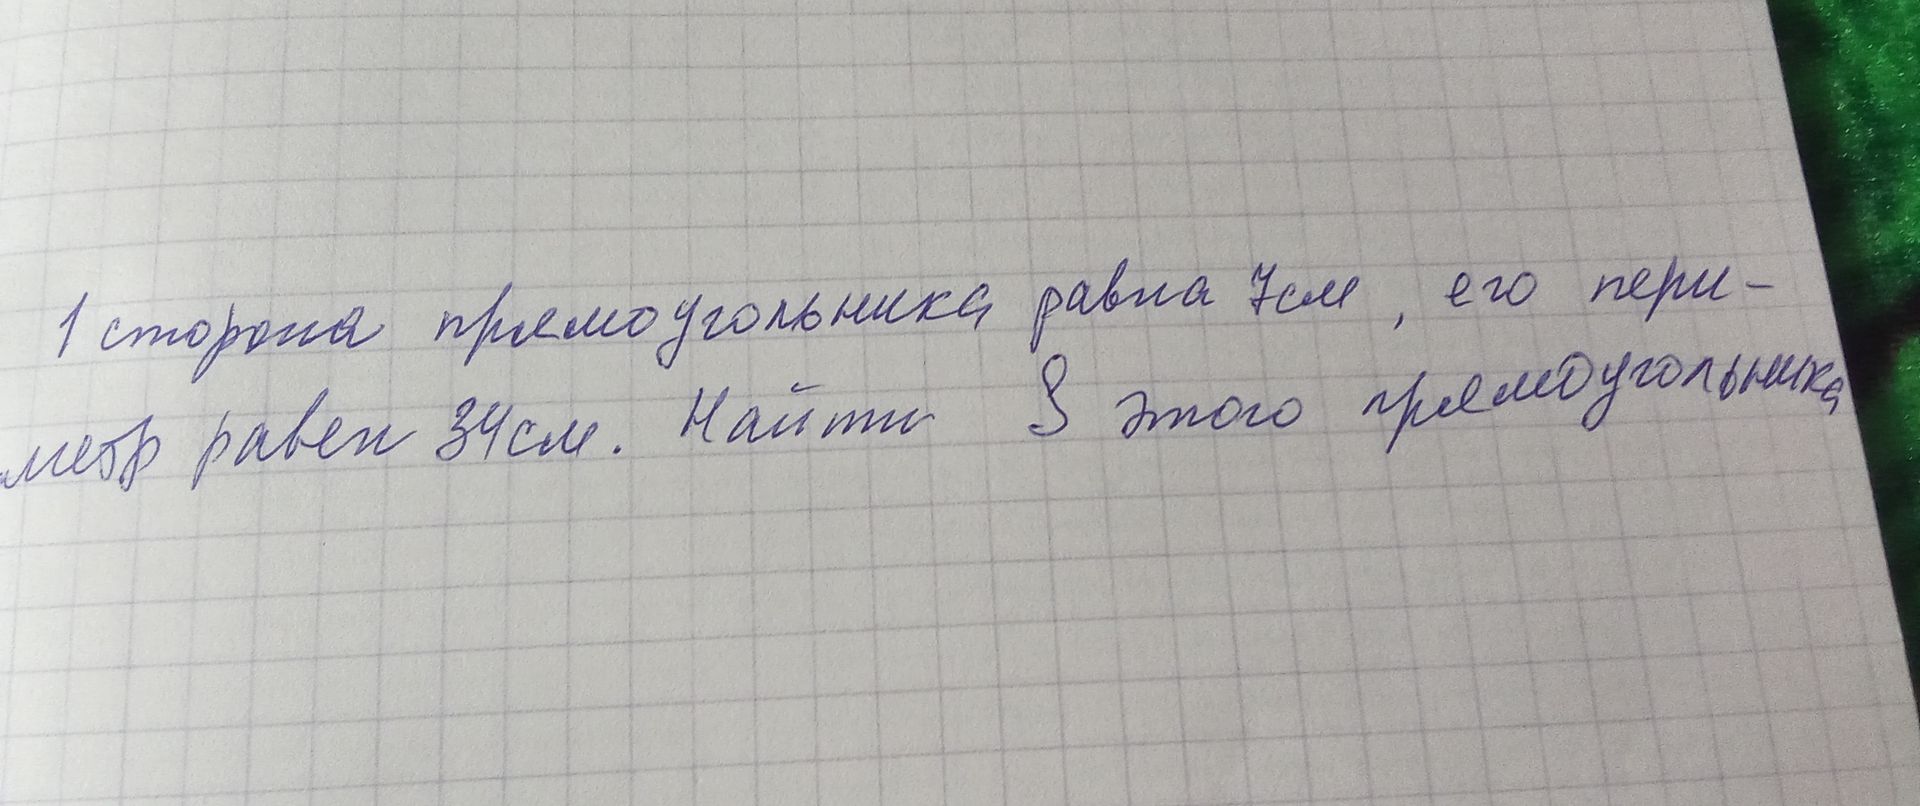 1 сторона прямоугольника равна 7см, его пери-
метр равен 34см. Найти S этого прямоугольника